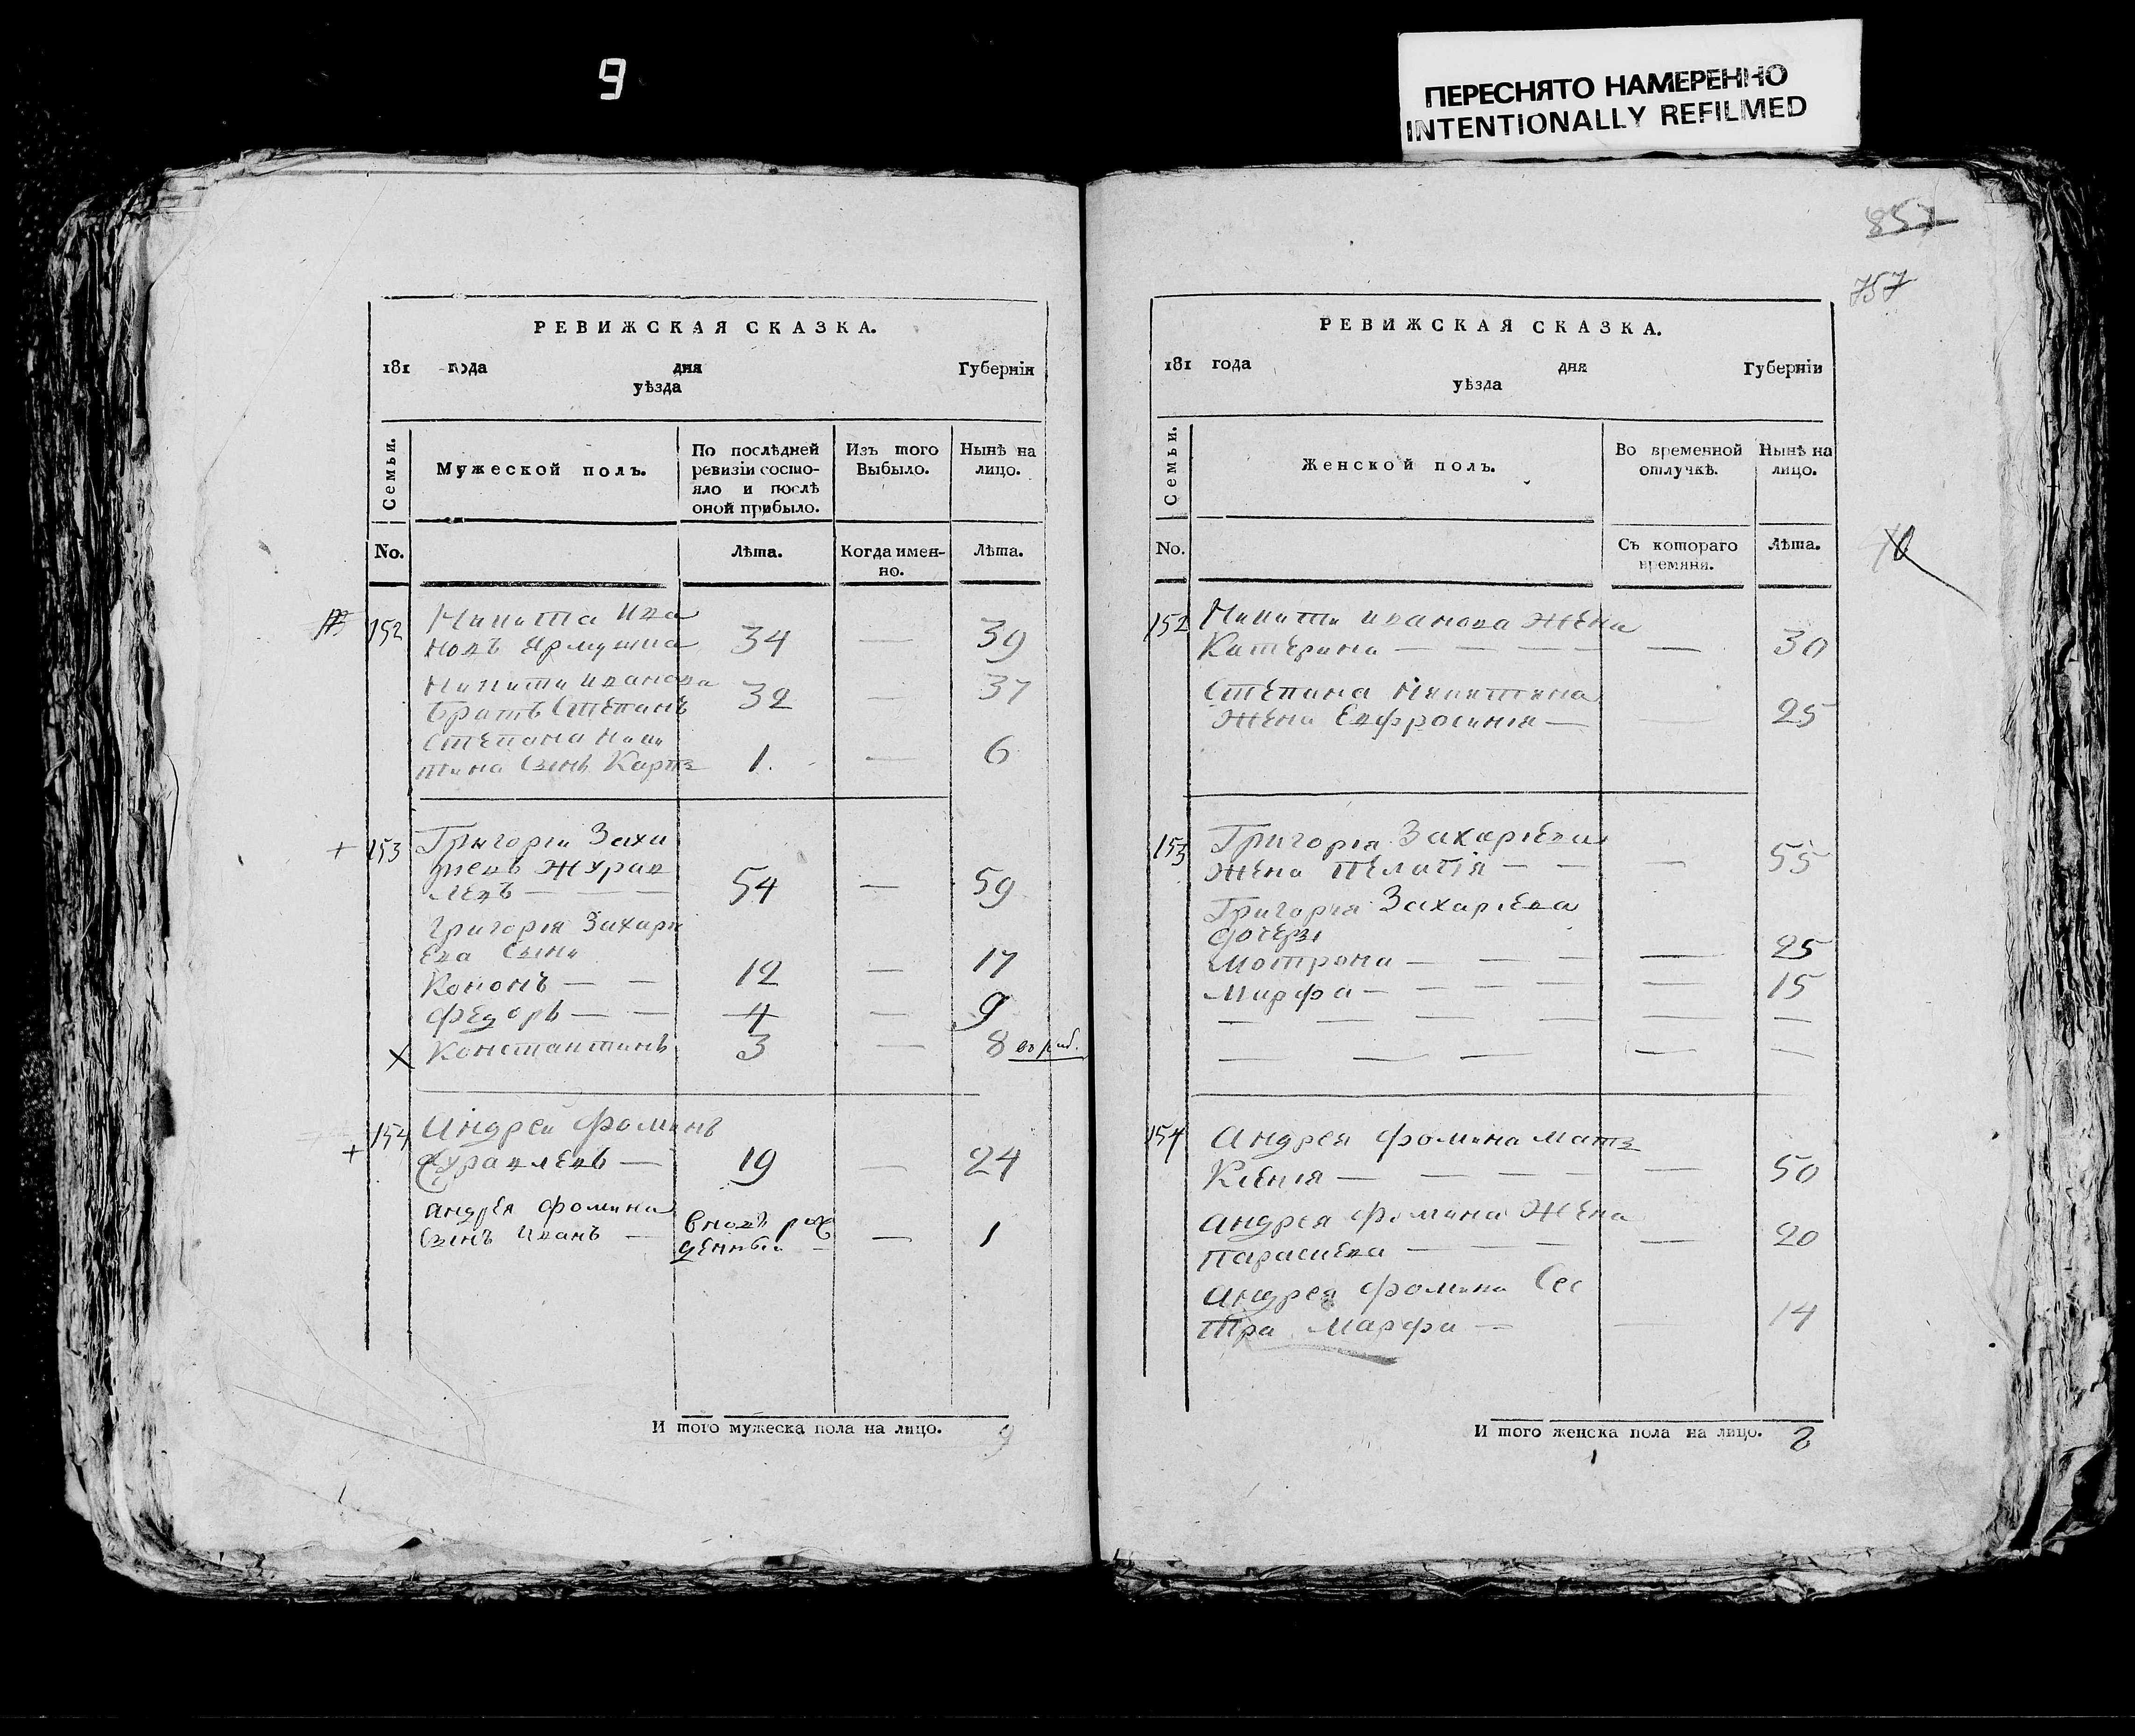 9
ПЕРЕСНЯТО НАМЕРЕННО
INTENTIONALLY REFILMED
РЕВИЖСКАЯ СКАЗКА.
181 года дня Губернiи
уѣзда
Семьи.
Мужеской полъ.
По послѣдней
ревизiи состо-
яло и послѣ
оной прибыло.
Изъ того
Выбыло.
Нынѣ на
лицо.
No.
Лѣта.
Когда имен-
но.
Лѣта.
152 Никита Ива
новъ 34 — 39
Никиты Иванова
Братъ Степанъ 32 — 37
Степана Ники
тина Сынъ 1. — 6
+ 153 Григорiи Заха
риевъ Журав
левъ — — — 54 — 59
Григорiя Захари
ева Сыни
Кононъ — — 12 — 17
Федоръ — — 4 — 9
X Константинъ 3 — 8
+ 154 Андреи Фоминъ
Журавлевъ — 19 — 24
Андрея Фомина
Сынъ Иванъ — вновь рож
денныи — — 1
И того мужеска пола на лицо. 9
857
757
РЕВИЖСКАЯ СКАЗКА.
181 года дня Губернiи
уѣзда
Семьи.
Женской полъ.
Во временной
отлучкѣ.
Нынѣ на
лицо.
No.
Съ котораго
времяни.
Лѣта.
152 Никиты Иванова жена
Катерина — — — — — 30
Степана Никитина
Жена Евфросиния — — 25
153 Григорiя Захарiева
жена Пелагiя — — — 55
Григория Захариева
дочери
Мотрона — — — — 25
Марфа — — — — — 15
154 Андрея Фомина мать
Ксения — — — — — 50
Андрея Фомина жена
Парасиева — — — — 20
Андрея Фомина Сес
тра Марфа — — 14
И того женска пола на лицо. 8